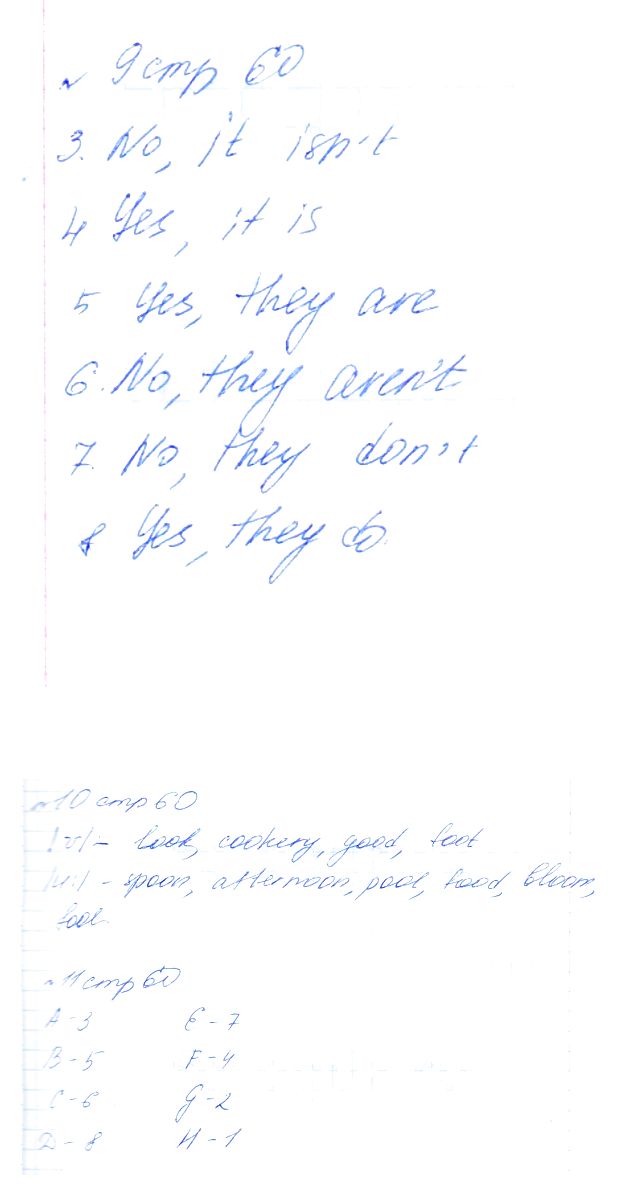 ~ 9 стр 60
3. No, it isn't
4 Yes, it is
5 Yes, they are
6. No, they aren't
7. No, they don't
8 Yes, they do.
~ 10 стр 60
/ʊ/ - look, cookery, good, foot
/u:/ - spoon, afternoon, pool, food, bloom,
fool.
~ 11 стр 60
A - 3 E - 7
B - 5 F - 4
C - 6 G - 2
D - 8 H - 1